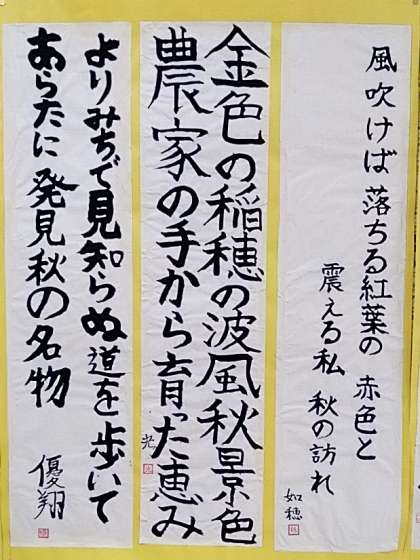 風吹けば 落ちる紅葉の 赤色と
震える私 秋の訪れ
如穂
金色の稲穂の波風秋景色
農家の手から育った恵み
光
よりみちで見知らぬ道を歩いて
あらたに発見秋の名物
優翔